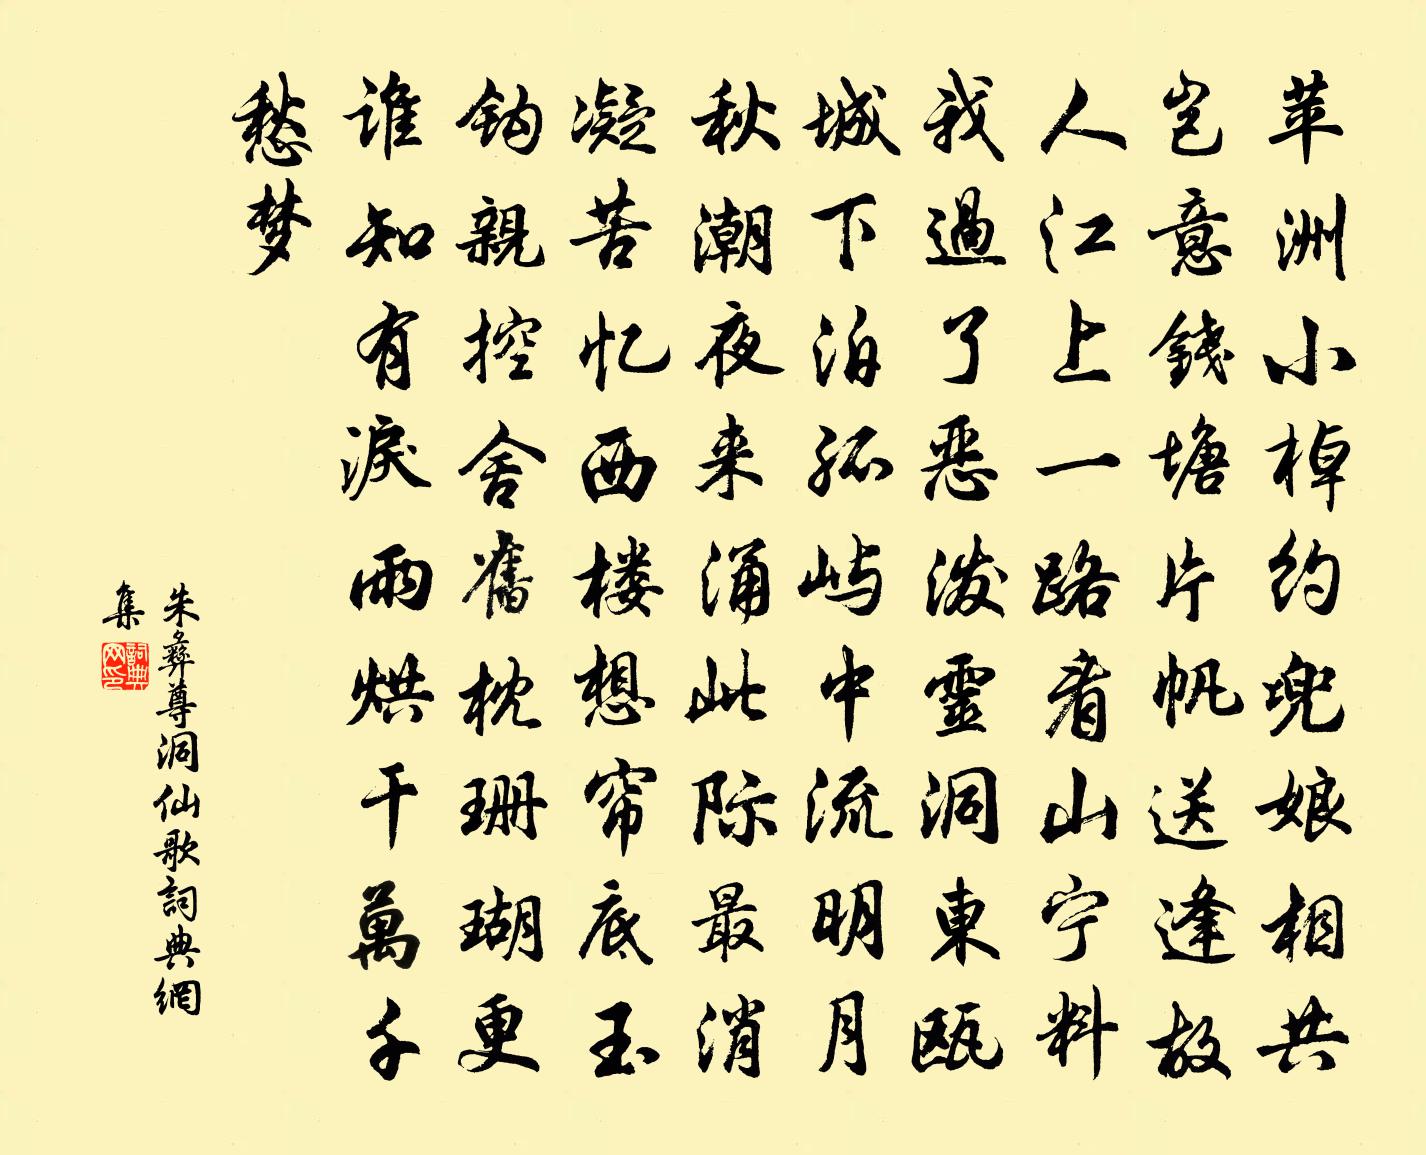 苹洲小棹约兜娘相共
岂意錢塘片帆送逢故
人江上一路看山宁料
我過了恶溪靈洞東瓯
城下泊孤屿中流明月
秋潮夜来涌此际最消
凝苦忆西楼想帘底玉
鈎親控舍舊枕珊瑚更
谁知有淚雨烘干萬千
愁梦
朱彝尊洞仙歌詞典網
集
詞典网印